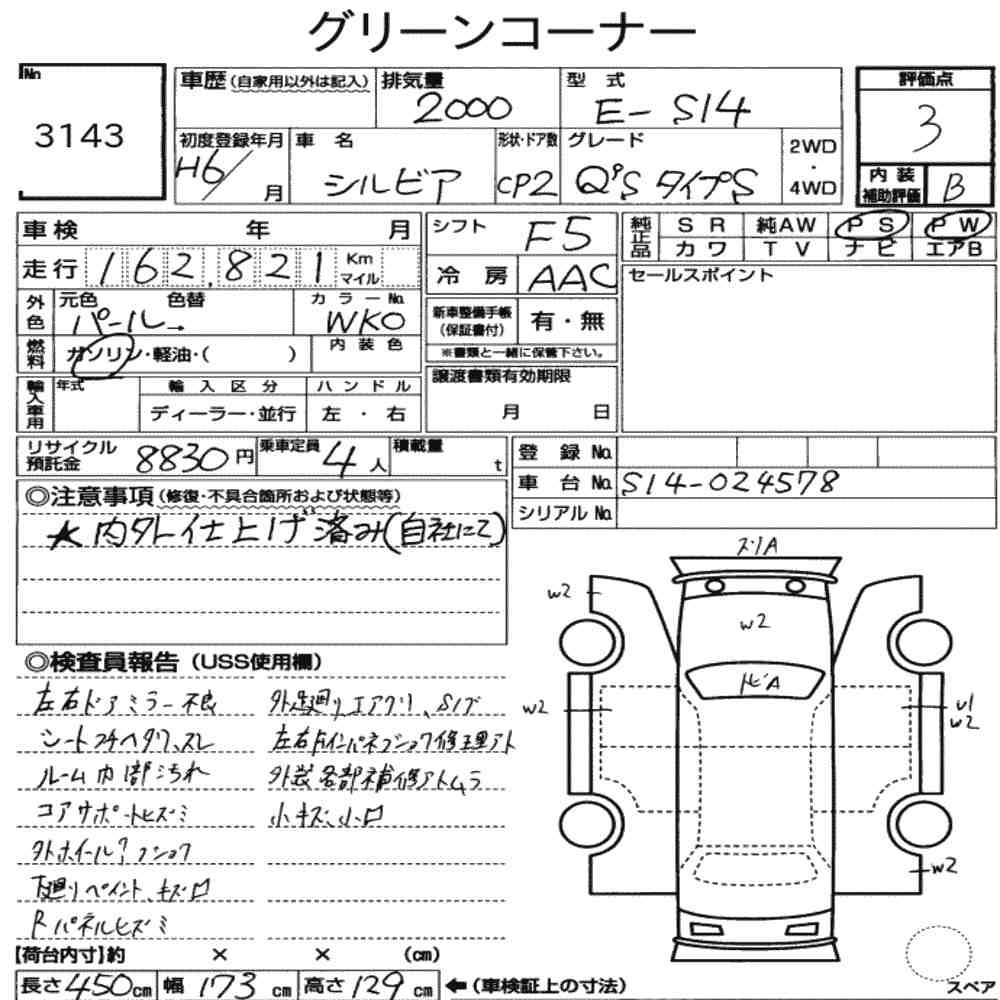 グリーンコーナー
No.
3143
車歴(自家用以外は記入)
排気量
2000
型 式
E-S14
評価点
3
初度登録年月
H6/ 月
車 名
シルビア
形状・ドア数
CP2
グレード
Q'S タイプS
2WD
・
4WD
内 装
補助評価
B
車検 年 月
シフト
F5
純正品
SR 純AW PS PW
カワ TV ナビ エアB
走行 162,821 Km マイル
冷房
AAC
セールスポイント
外色
元色 色替
パール→
カラーNo.
WK0
新車整備手帳
(保証書付)
有・無
燃料
ガソリン・軽油・( )
内装色
※書類と一緒に保管下さい。
輸入車用
年式
輸入区分
ディーラー・並行
ハンドル
左・右
譲渡書類有効期限
月 日
リサイクル
預託金
8830円
乗車定員
4人
積載量
t
登録No.
車台No. S14-024578
シリアルNo.
◎注意事項(修復・不具合箇所および状態等)
★内外仕上げ済み(自社にて)
◎検査員報告(USS使用欄)
左右ドアミラー不良
シートコゲヘタリ、スレ
ルーム内部汚れ
コアサポートヒズミ
外ホイール
下廻りペイント、キズ
Rパネルヒズミ
外足廻り、エアクリ、
左右 インパネ 修理アト
外装各部補修アトムラ
小キズ、小
W2
W2
W2
U1
W2
W2
スペア
【荷台内寸】約 × × (cm)
長さ450cm 幅173cm 高さ129cm ←(車検証上の寸法)